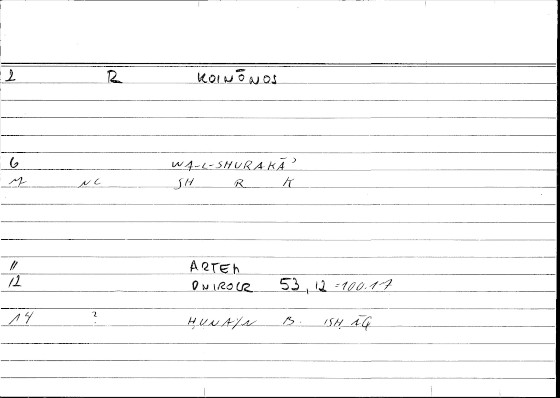 2 R KOINŌNOS
6 WA-L-SHURAKĀʾ
7 NC SH R K
11 ARTEM
12 ONIROCR 53,12 =100.17
14 ? ḤUNAYN B. ISḤĀQ